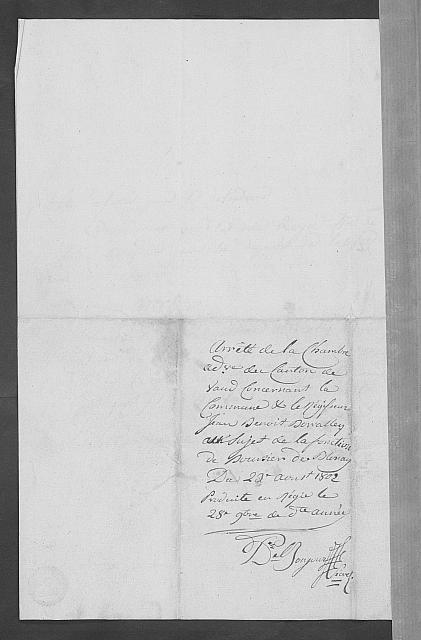 Arrêté de la Chambre
ad.ve du Canton de
Vaud Concernant la
Commune & le Régisseur
Jean Benoit
au Sujet de la fonction
de Boursier de Blonay
Du 23e aoust 1802
Produite en Régie le
28e 9bre de dte année
Bonjour